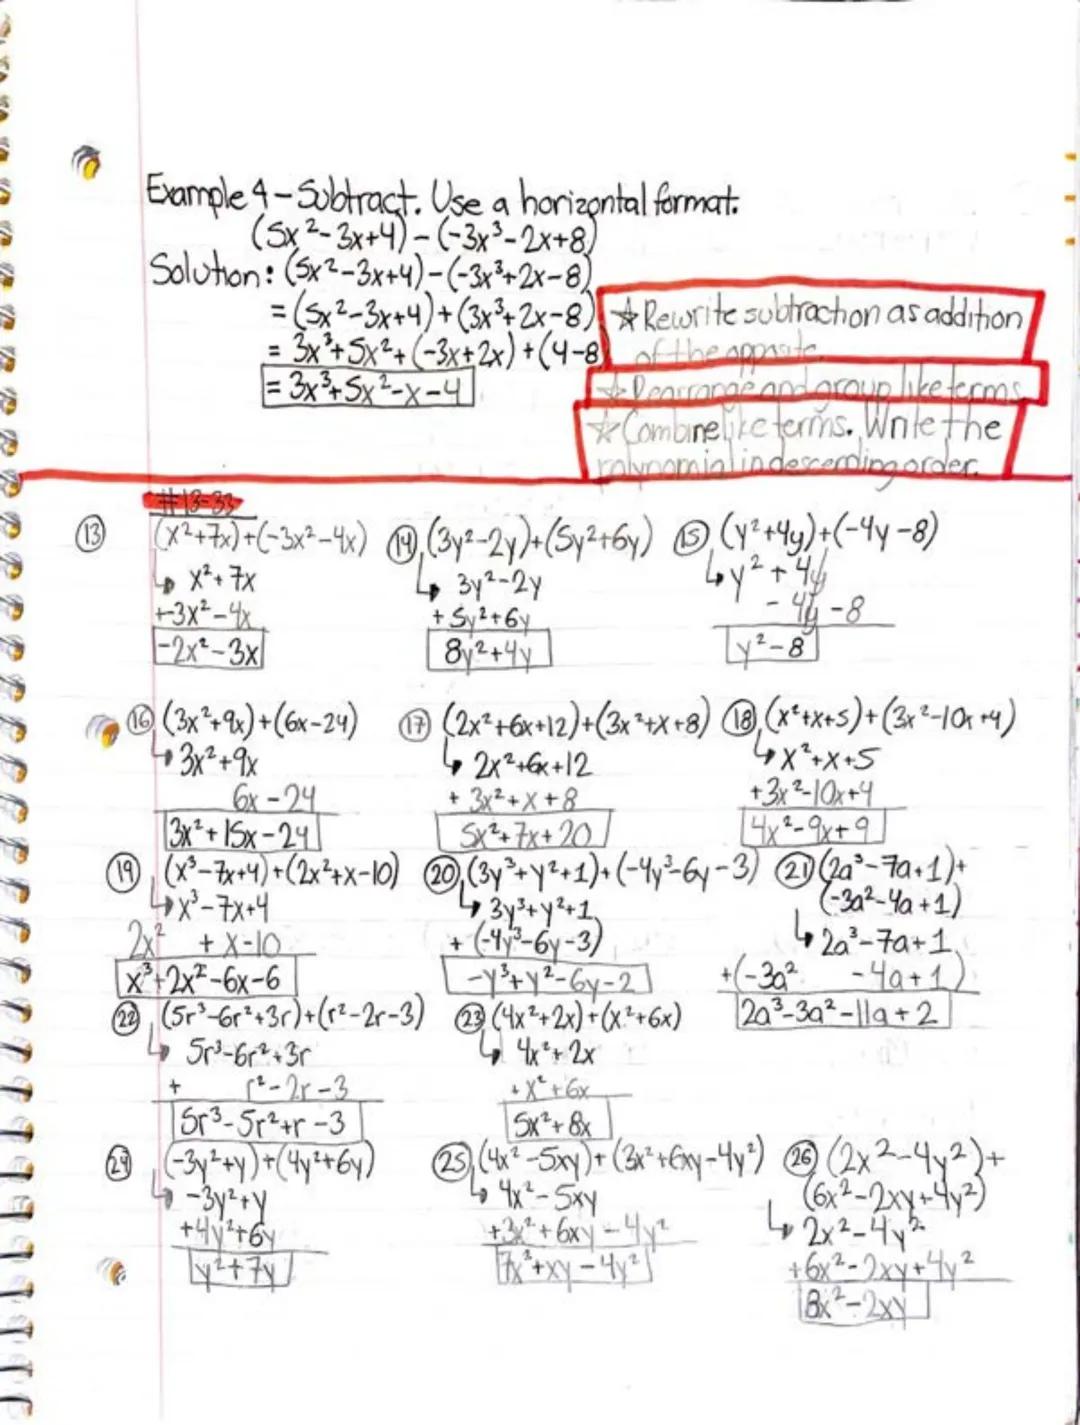 Example 4 - Subtract. Use a horizontal format.
(5x²-3x+4) - (-3x³-2x+8)
Solution: (5x²-3x+4) - (-3x³+2x-8)
= (5x²-3x+4) + (3x³+2x-8)
☆ Rewrite subtraction as addition
of the opposite.
= 3x³+5x²+(-3x+2x)+(4-8
☆ Rearrange and group like terms
= 3x³+5x²-x-4
☆ Combine like terms. Write the
polynomial in descending order.
#13-33
⑬ (x²+7x)+(-3x²-4x)
↳ x²+7x
+-3x²-4x
-2x²-3x
⑭ (3y²-2y)+(5y²+6y)
↳ 3y²-2y
+5y²+6y
8y²+4y
⑮ (y²+4y)+(-4y-8)
↳ y²+4y
-4y-8
y²-8
⑯ (3x²+9x)+(6x-24)
↳ 3x²+9x
6x-24
3x²+15x-24
⑰ (2x²+6x+12)+(3x²+x+8)
↳ 2x²+6x+12
+3x²+x+8
5x²+7x+20
⑱ (x²+x+5)+(3x²-10x+4)
↳ x²+x+5
+3x²-10x+4
4x²-9x+9
⑲ (x³-7x+4)+(2x²+x-10)
↳ x³-7x+4
2x² +x-10
x³+2x²-6x-6
⑳ (3y³+y²+1)+(-4y³-6y-3)
↳ 3y³+y²+1
+(-4y³-6y-3)
-y³+y²-6y-2
㉑ (2a³-7a+1)+
(-3a²-4a+1)
↳ 2a³-7a+1
+(-3a² -4a+1)
2a³-3a²-11a+2
㉒ (5r³-6r²+3r)+(r²-2r-3)
↳ 5r³-6r²+3r
+ r²-2r-3
5r³-5r²+r-3
㉓ (4x²+2x)+(x²+6x)
↳ 4x²+2x
+x²+6x
5x²+8x
㉔ (-3y²+y)+(4y²+6y)
↳ -3y²+y
+4y²+6y
y²+7y
㉕ (4x²-5xy)+(3x²+6xy-4y²)
↳ 4x²-5xy
+3x²+6xy-4y²
7x²+xy-4y²
㉖ (2x²-4y²)+
(6x²-2xy+4y²)
↳ 2x²-4y²
+6x²-2xy+4y²
8x²-2xy